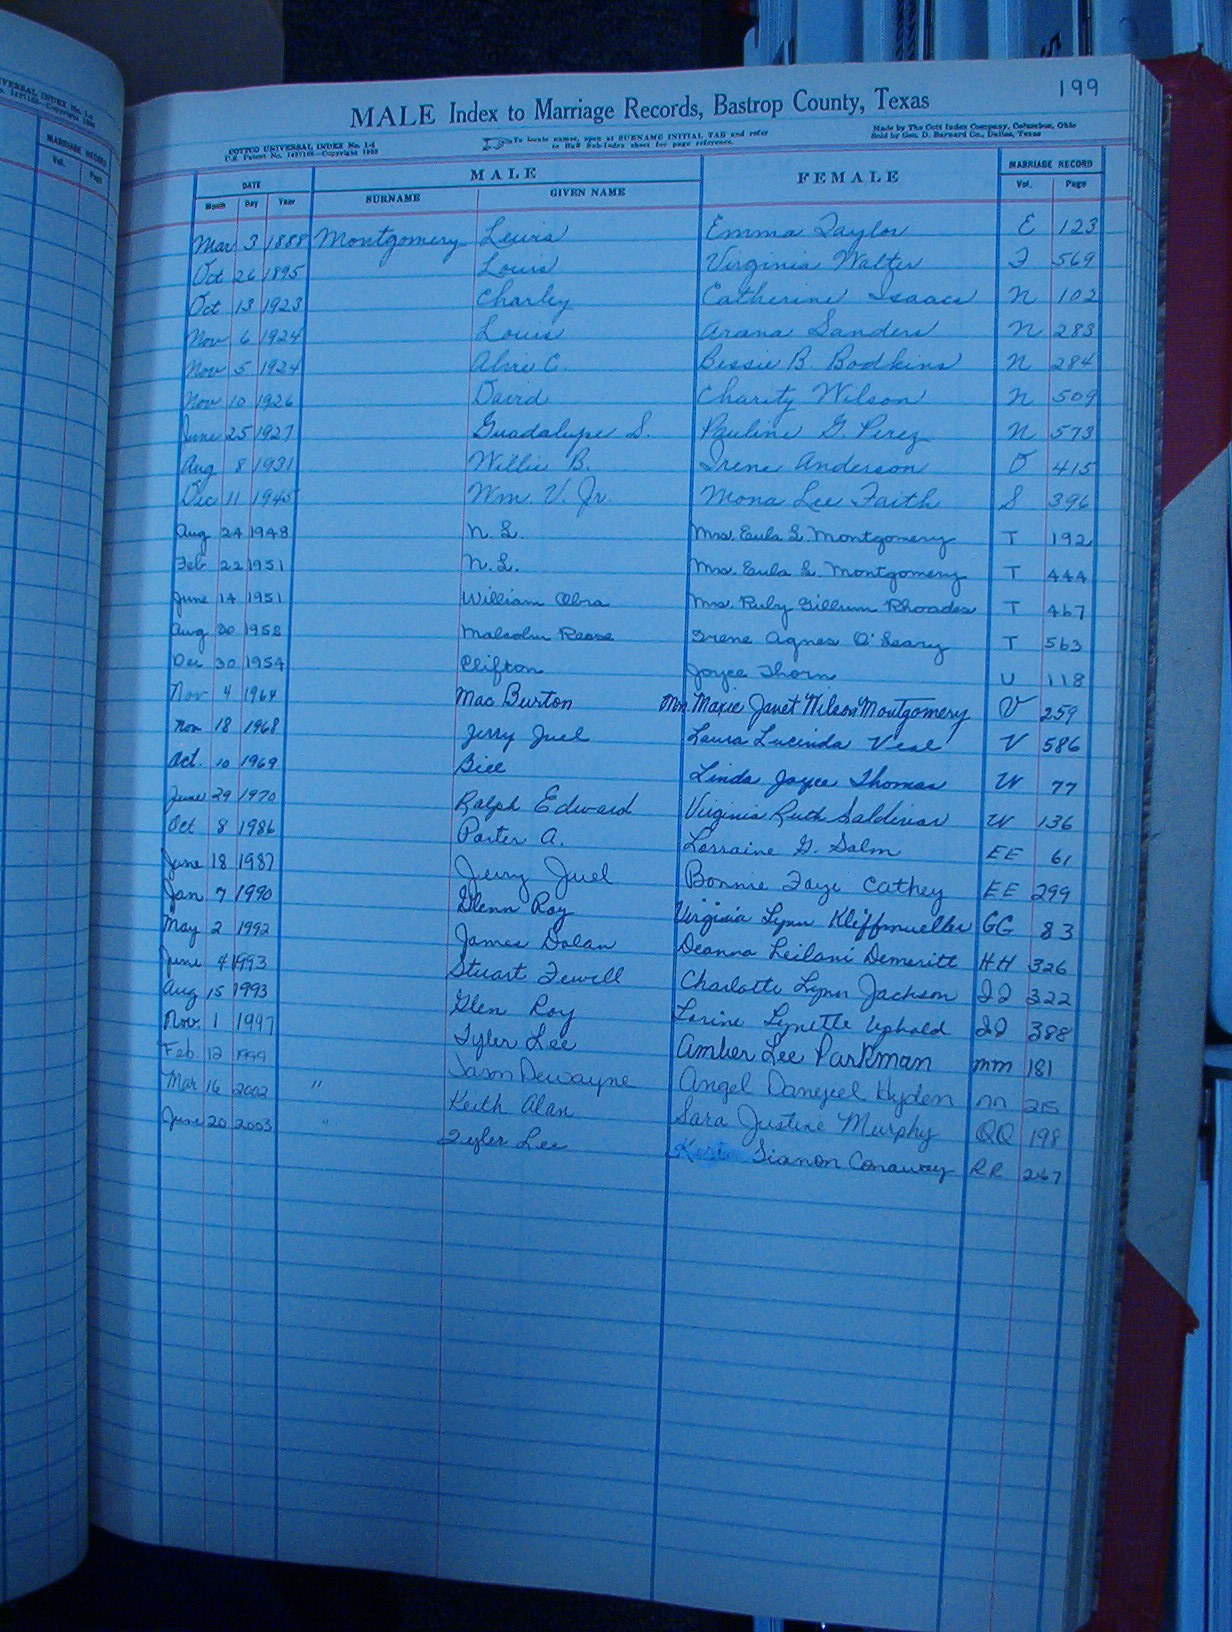 199
MALE Index to Marriage Records, Bastrop County, Texas
COTTCO UNIVERSAL INDEX No. 1-4
U.S. Patent No. Copyright
To locate names, open at SURNAME INITIAL TAB and refer
to Buff Sub-Index sheet for page reference.
Made by The Cott Index Company, Columbus, Ohio
Sold by Geo. D. Barnard Co., Dallas, Texas
MARRIAGE RECORD
Vol. Page
DATE MALE FEMALE MARRIAGE RECORD
Month Day Year SURNAME GIVEN NAME Vol. Page
Mar 3 1888 Montgomery Lewis Emma Taylor E 123
Oct 26 1895 Louis Virginia Walter F 569
Oct 13 1923 Charley Catherine Isaacs N 102
Nov 6 1924 Louis Arana Sanders N 283
Nov 5 1924 C. Bessie B. Bodkins N 284
Nov 10 1926 David Charity Wilson N 509
June 25 1927 Guadalupe S. Pauline G. Perez N 573
Aug 8 1931 Willie B. Irene Anderson O 415
Dec 11 1945 Wm. V. Jr. Mona Lee Faith S 396
Aug 24 1948 N. L. Mrs. Eula L. Montgomery T 192
Feb 22 1951 N. L. Mrs. Eula L. Montgomery T 444
June 14 1951 William Obra Mrs. Ruby Gillum Rhoades T 467
Aug 30 1952 Malcolm Reese Irene Agnes O'Leary T 563
Dec 30 1954 Clifton Joyce Thorn U 118
Nov 4 1964 Mac Burton Mrs. Maxie Janet Wilson Montgomery V 259
Nov 18 1968 Jerry Juel Laura Lucinda Veal V 586
Oct. 10 1969 Bill Linda Joyce Thomas W 77
June 29 1970 Ralph Edward Virginia Ruth Saldivar W 136
Oct 8 1986 Porter A. Lorraine G. Salm EE 61
June 18 1987 Jerry Juel Bonnie Faye Cathey EE 299
Jan 7 1990 Glenn Roy Virginia Lynn Kleffmueller GG 83
May 2 1992 James Dolan Deanna Leilani Demeritt HH 326
June 4 1993 Stuart Fewell Charlotte Lynn Jackson JJ 322
Aug 15 1993 Glen Roy Lorine Lynette Uphold JJ 388
Nov. 1 1997 Tyler Lee Amber Lee Parkman MM 181
Feb 12 1999 Jason Dewayne Angel Hyden NN 215
Mar 16 2002 " Keith Alan Sara Justine Murphy QQ 198
June 20 2003 " Tyler Lee Sianon Conaway RR 267